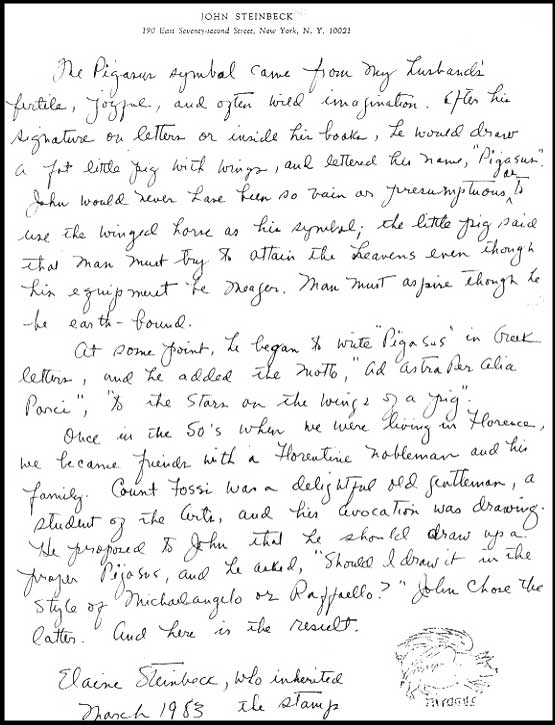 JOHN STEINBECK
190 East Seventy-second Street, New York, N. Y. 10021
The Pigasus symbol came from my husband's
fertile, joyful, and often wild imagination. After his
signature on letters or inside his books, he would draw
a fat little pig with wings, and lettered his name, "Pigasus".
John would never have been so vain or presumptuous as to
use the winged horse as his symbol; the little pig said
that man must try to attain the heavens even though
his equipment be meager. Man must aspire though he
be earth-bound.
At some point, he began to write "Pigasus" in Greek
letters, and he added the motto, "Ad Astra Per Alia
Porci", "to the stars on the wings of a pig".
Once in the 50's when we were living in Florence,
we became friends with a Florentine nobleman and his
family. Count Fossi was a delightful old gentleman, a
student of the Arts, and his avocation was drawing.
He proposed to John that he should draw up a
proper Pigasus, and he asked, "Should I draw it in the
style of Michaelangelo or Raffaello?" John chose the
latter. And here is the result.
Elaine Steinbeck, who inherited
March 1983 the stamp